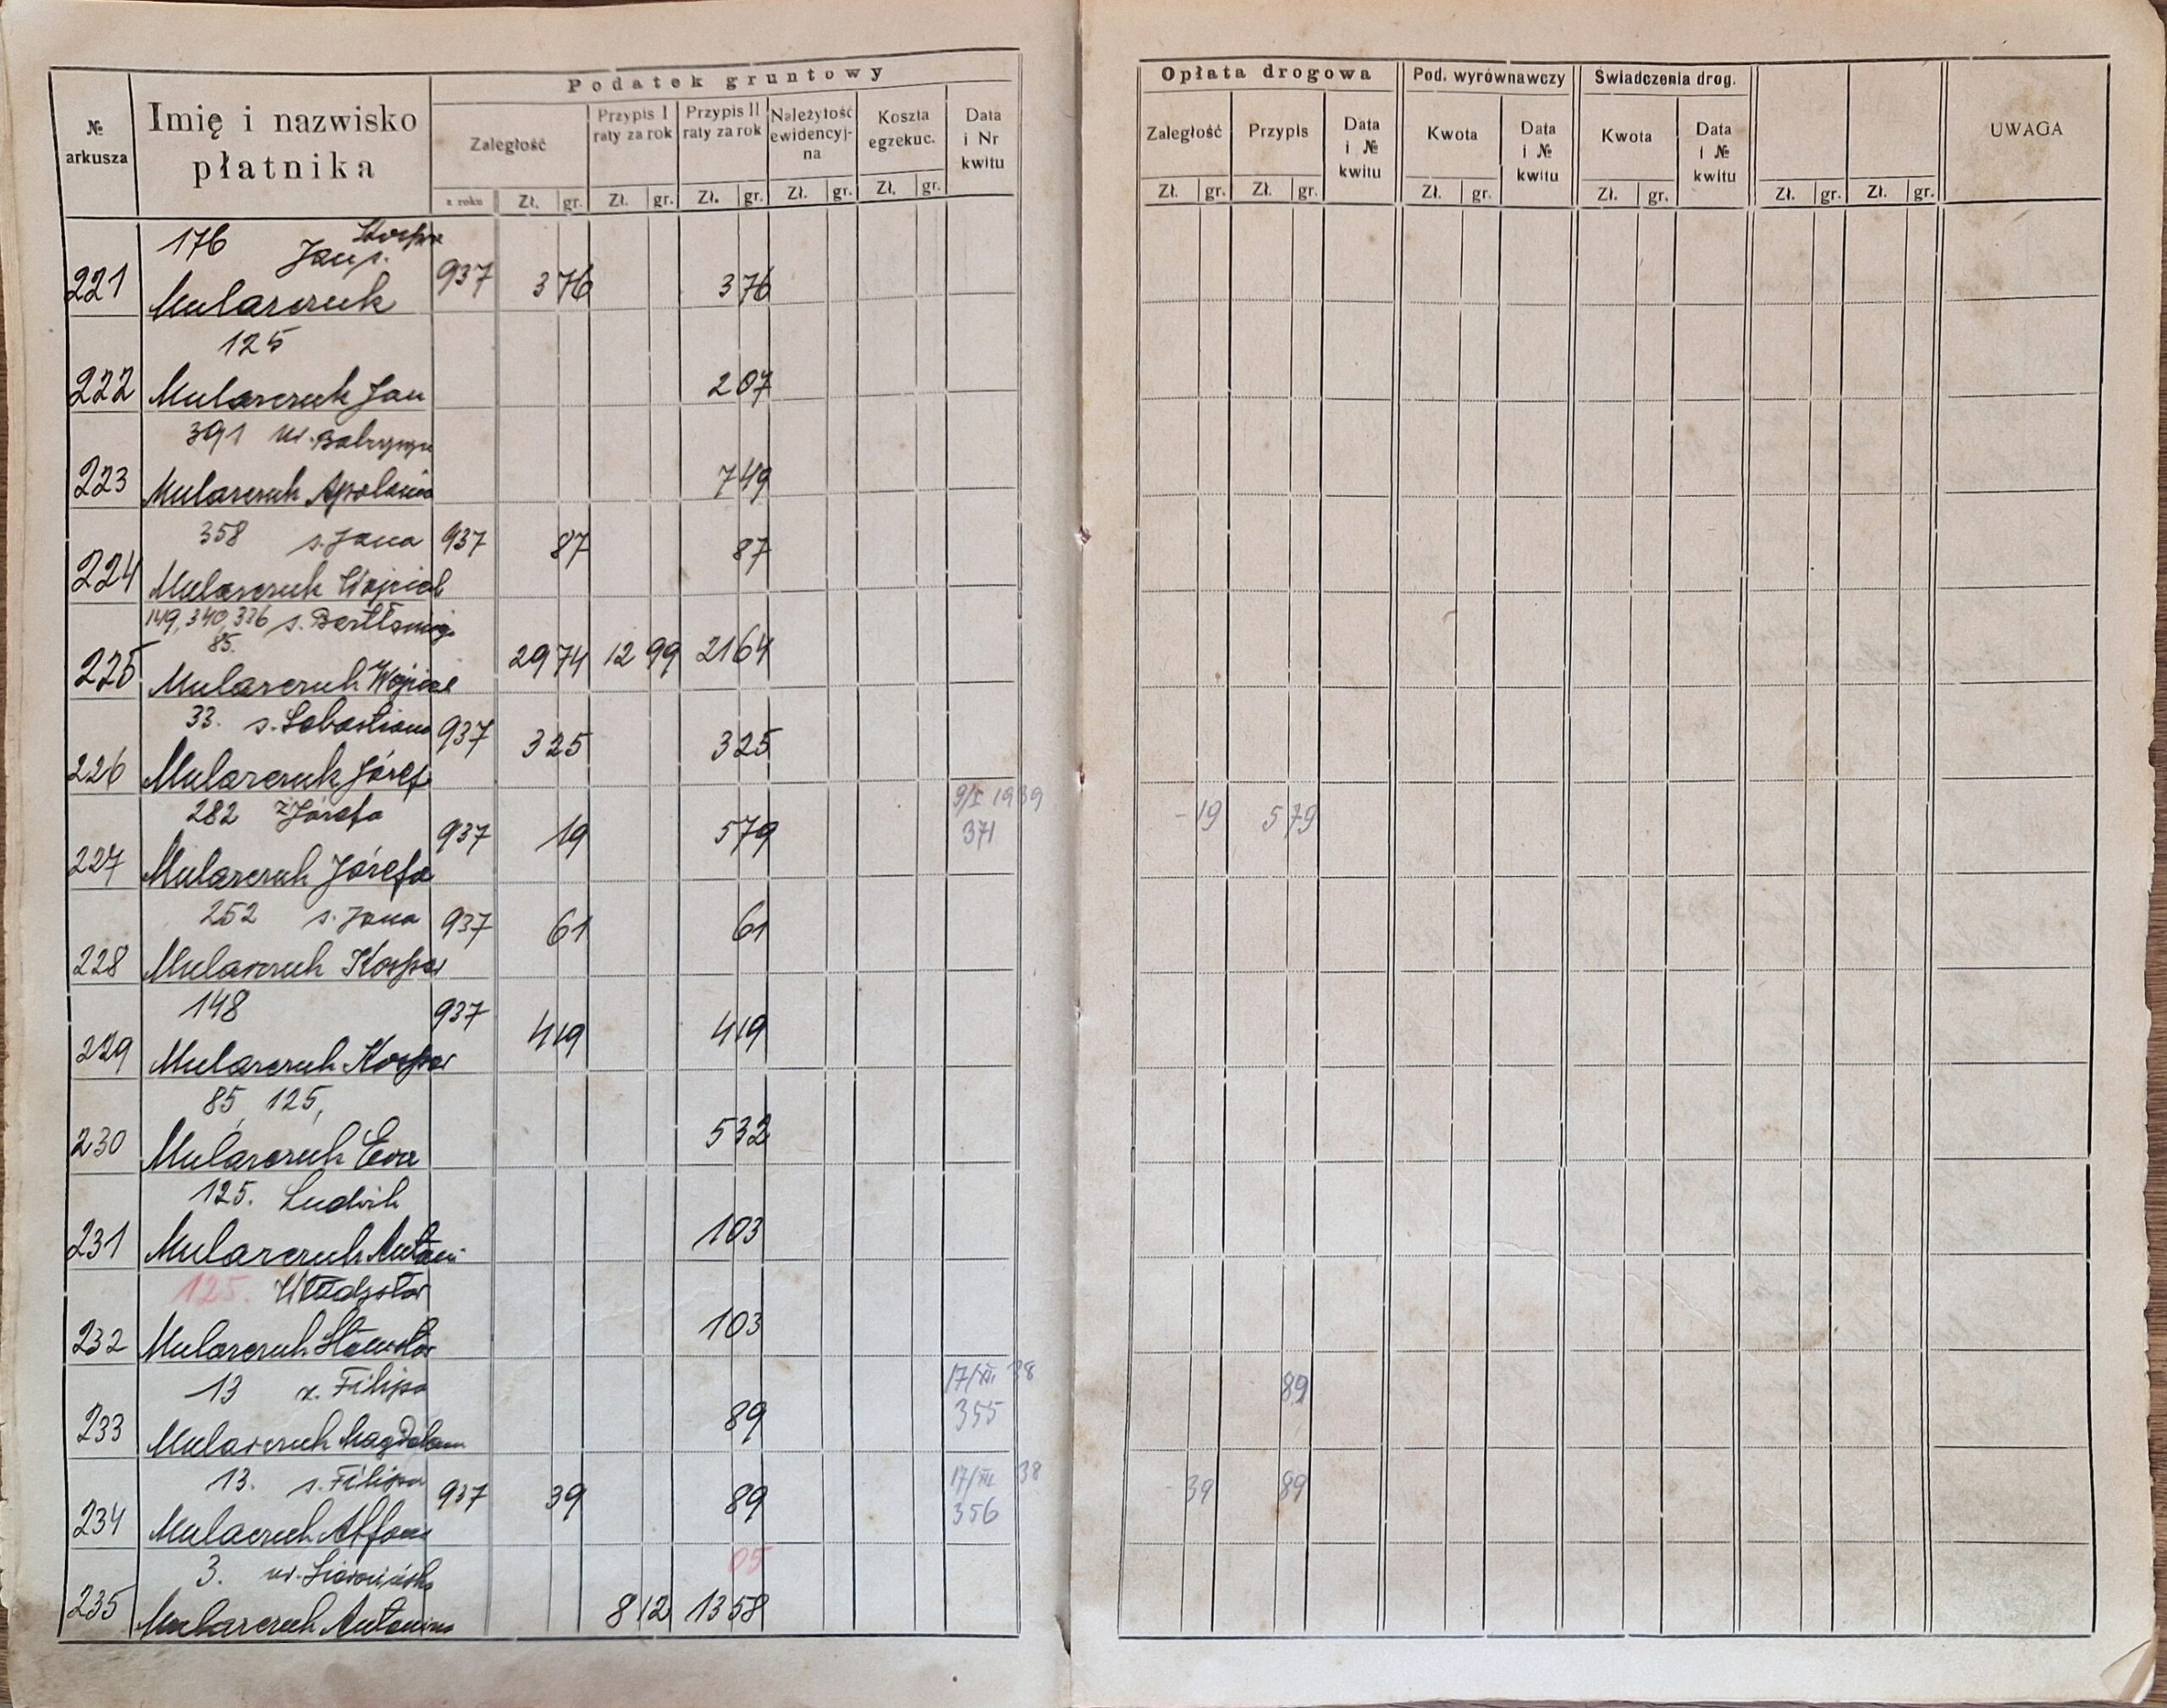 Podatek gruntowy
№ arkusza
Imię i nazwisko płatnika
Zaległość
Przypis I raty za rok
Przypis II raty za rok
Należytość ewidencyj-na
Koszta egzekuc.
Data i Nr kwitu
z roku Zł. gr. Zł. gr. Zł. gr. Zł. gr. Zł. gr.
Opłata drogowa
Pod. wyrównawczy
Świadczenia drog.
Zaległość
Przypis
Data i № kwitu
Kwota
Data i № kwitu
Kwota
Data i № kwitu
UWAGA
Zł. gr. Zł. gr. Zł. gr. Zł. gr. Zł. gr. Zł. gr.
176 Jan s.
221 Mularczuk 937 3 76 3 76
125
222 Mularczuk Jan 2 07
391
223 Mularczuk Apolonia 7 49
358 s. Jana 937 87 87
224 Mularczuk Wojciech
149, 340, 336 s.
85.
225 Mularczuk Wojciech 29 74 12 99 21 64
33. s. Sebastiana 937 3 25 3 25
226 Mularczuk Józef
282 ż Józefa 9/I 1939
227 Mularczuk Józefa 937 19 5 79 371 - 19 5 79
252 s. Jana 937 61 61
228 Mularczuk Kasper
148 937
229 Mularczuk Kasper 4 19 4 19
85, 125,
230 Mularczuk Ewa 5 32
125. Ludwik
231 Mularczuk Antoni 1 03
125. Władysław
232 Mularczuk Stanisław 1 03
13 z. Filipa 17/XII 38
233 Mularczuk Magdalena 89 355 89
13. s. Filipa 937 17/XII 38
234 Mularczuk Alfons 39 89 356 - 39 89
3. 05
235 Mularczuk Antonina 8 12 13 58